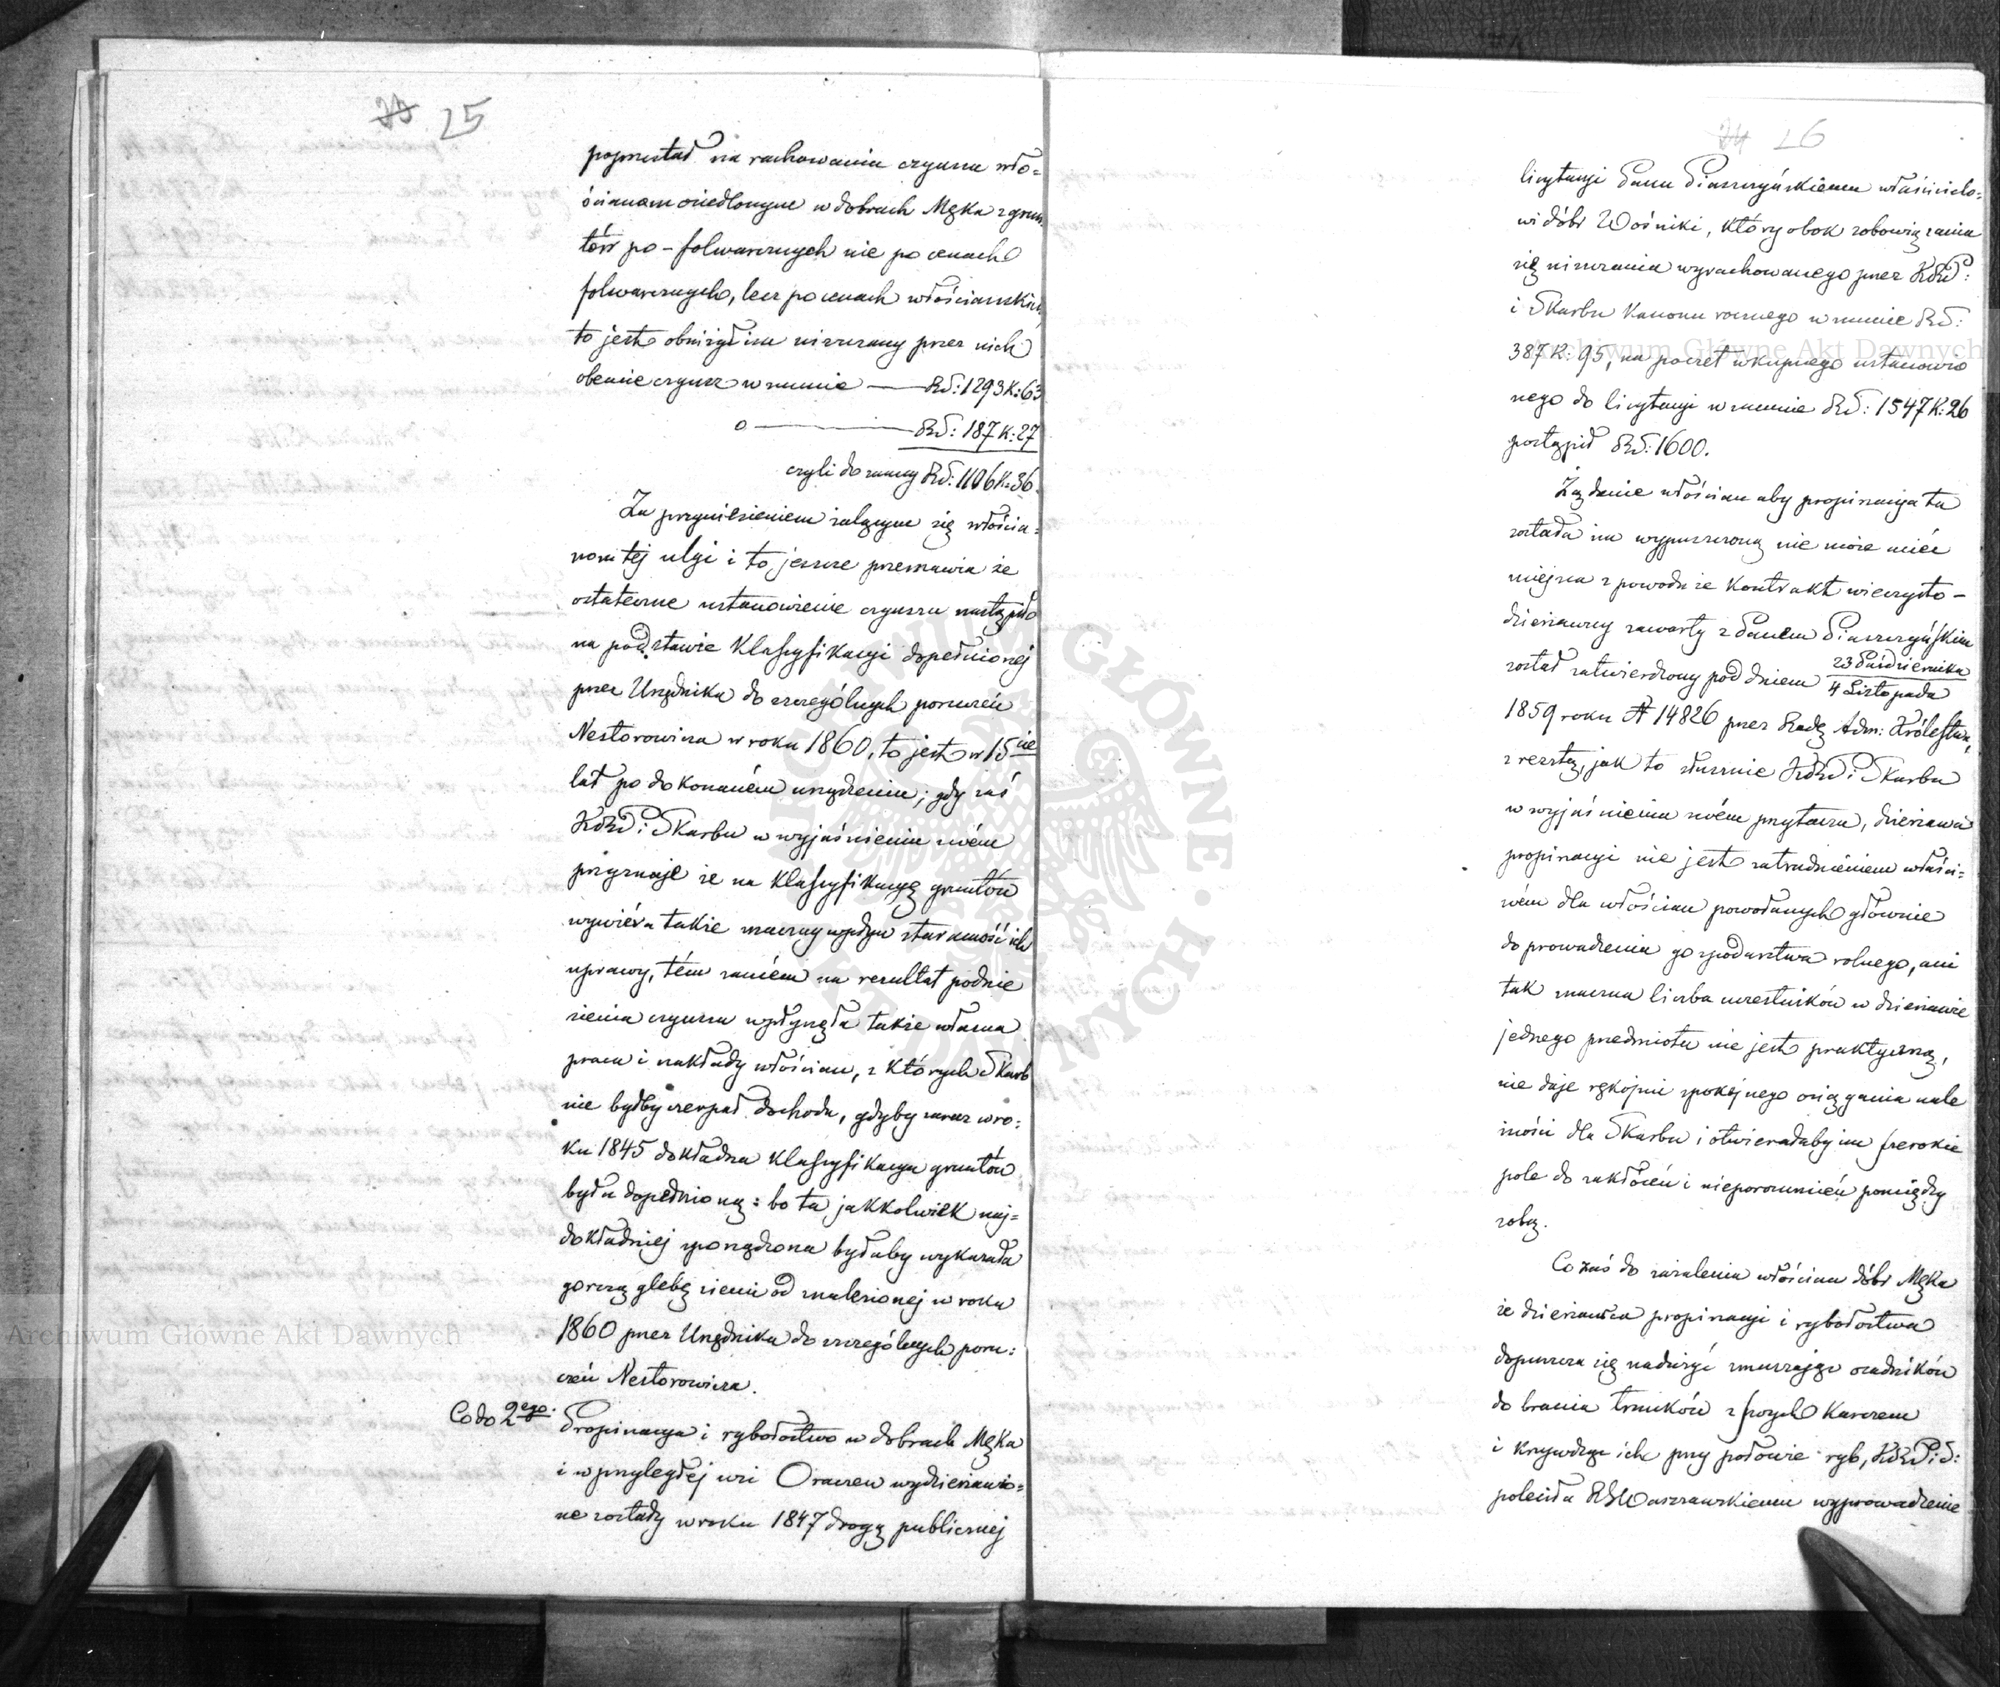 25
poprzestał na rachowaniu czynszu wło=
ścianom osiedlonym w dobrach Męka z grun
tów po-folwarcznych nie po cenach
folwarcznych, lecz po cenach włościańskich,
to jest obniżył im uiszczany przez nich
obecnie czynsz w summie — RS: 1293 K: 63
o — RS: 187 K: 27
czyli do summy RS: 1106 K: 36.
Za przyniesieniem żalącym się włościa=
nom tej ulgi i to jeszcze przemawia że
ostateczne ustanowienie czynszu nastąpiło
na podstawie klassyfikacyi dopełnionej
przez Urzędnika do szczególnych poruczeń
Nestorowicza w roku 1860, to jest w 15cie
lat po dokonaném urządzeniu; gdy zaś
KRP i Skarbu w wyjaśnieniu swém
przyznaje że na klassyfikacyą gruntów
wywiéra także znaczny wpływ staranność ich
uprawy, tém samém na rezultat podnie
sienia czynszu wpłynęła także własna
praca i nakłady włościan, z których Skarb
nie byłby czerpał dochodu, gdyby zaraz w ro=
ku 1845 dokładna klassyfikacya gruntów
była dopełnioną: bo ta jakkolwiek naj=
dokładniej sporządzona byłaby wykazała
gorszą glebę ziemi od znalezionej w roku
1860 przez Urzędnika do szczególnych poru=
czeń Nestorowicza.
Co do 2ego. Propinacya i rybołostwo w dobrach Męka
i w przyległej wsi Oraczew wydzierżawio=
ne zostały w roku 1847 drogą publicznej
26
licytacyi Panu Piaszczyńskiemu właścicielo=
wi dóbr Wośniki, który obok zobowiązania
się uiszczania wyrachowanego przez KRP:
i Skarbu Kanonu rocznego w summie RS:
387 K: 95, na poczet wkupnego ustanowio
nego do licytacyi w summie RS: 1547 K: 26
postąpił RS: 1600.
Żądanie włościan aby propinacya ta
została im wypuszczoną nie może mieć
miejsca z powodu że Kontrakt wieczysto-
dzierżawny zawarty z Panem Piaszczyńskim
został zatwierdzony pod dniem 23 Października
4 Listopada
1859 roku N 14826 przez Radę Adm: Królestwa,
zresztą, jak to słusznie KRP i Skarbu
w wyjaśnieniu swém przytacza, dzierżawa
propinacyi nie jest zatrudnieniem właści=
wém dla włościan powołanych głównie
do prowadzenia gospodarstwa rolnego, ani
tak znaczna liczba uczestników w dzierżawie
jednego przedmiotu nie jest praktyczną,
nie daje rękojmi spokojnego osiągania nale
żności dla Skarbu i otwierałaby im szerokie
pole do zakłóceń i nieporozumień pomiędzy
sobą.
Co zaś do zażalenia włościan dóbr Męka
że dzierżawca propinacyi i rybołostwa
dopuszcza się nadużyć zmuszając osadników
do brania trunków z swych karczem
i krzywdząc ich przy połowie ryb, KRP: i S:
poleciła RGWarszawskiemu wyprowadzenie
Archiwum Główne Akt Dawnych
Archiwum Główne Akt Dawnych
ARCHIWUM GŁÓWNE AKT DAWNYCH